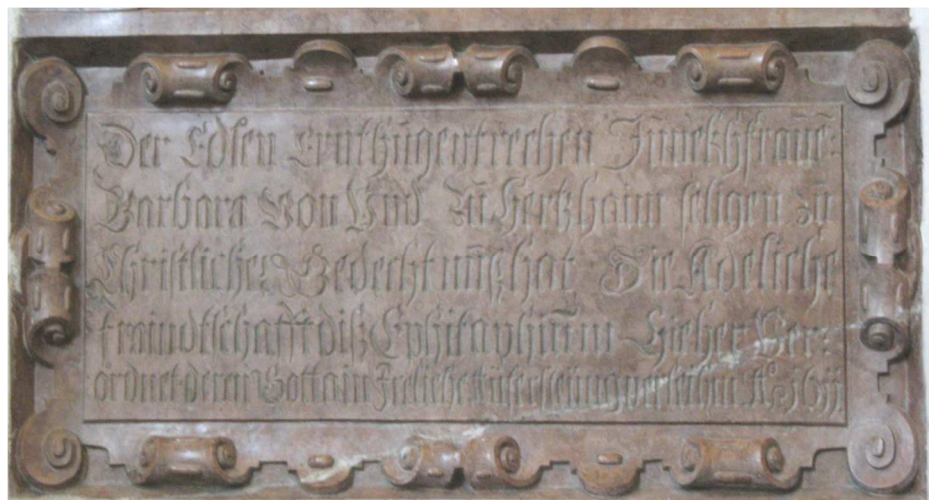 Der Edlen Ernthugentreichen Junckhfraue:
Barbara Von Vnd Zu Hertzhaim seligen zu
Christlicher Gedechtnuß hat Die Adeliche
freindtschafft diß Epithaphium Hieher Ver:
ordnet deren Gott ain Freliche Aufersteung verleihn Ao